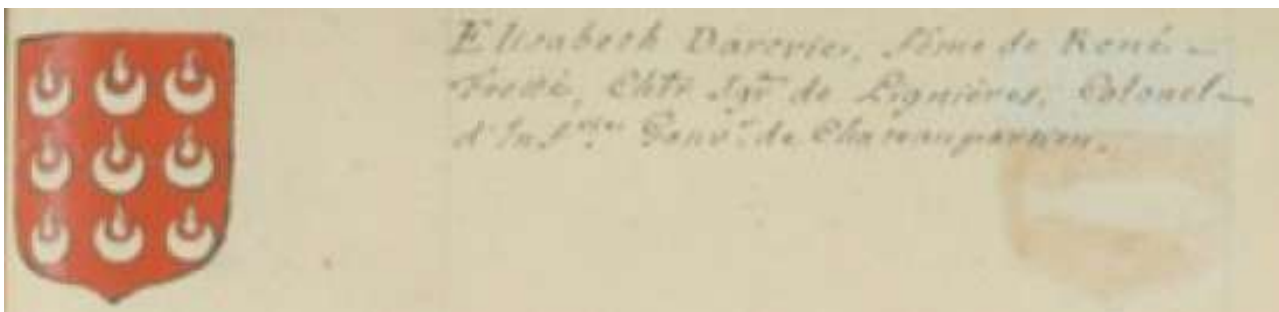 Elisabeth Darevier, fême de René
Chlr Sgr de Lignières, Colonel
d'Inf.rie Gouv.r de Chateauporcien.